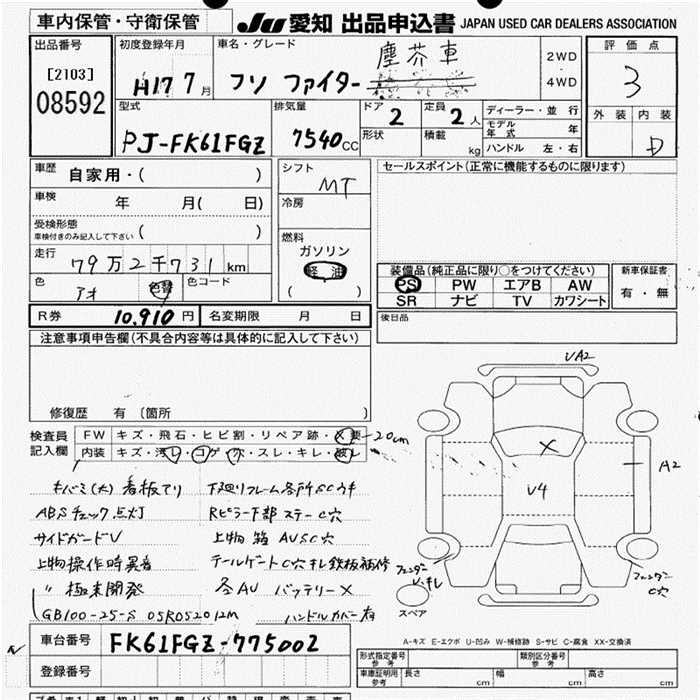 車内保管・守衛保管
JU 愛知 出品申込書 JAPAN USED CAR DEALERS ASSOCIATION
出品番号
[2103]
08592
初度登録年月
H17 7月
車名・グレード
フソ ファイター
塵芥車
2WD
4WD
評価点
3
外装 内装
D
型式
PJ-FK61FGZ
排気量
7540cc
ドア
2
定員
2人
形状
積載
kg
ディーラー・並行
モデル年式 年
ハンドル 左・右
車歴 自家用・( )
車検 年 月( 日)
受検形態
車検付きのみ記入して下さい ( )
走行 79万2千731km
色 アオ 色替 色コード
シフト
MT
冷房
燃料
ガソリン
軽油
( )
セールスポイント(正常に機能するものに限ります)
装備品(純正品に限り○をつけてください)
PS PW エアB AW
SR ナビ TV カワシート
新車保証書
有・無
R券 10,910円 名変期限 月 日
後日品
注意事項申告欄(不具合内容等は具体的に記入して下さい)
修復歴 有〔箇所 〕
検査員記入欄
FW キズ・飛石・ヒビ割・リペア跡・X要 20cm
内装 キズ・汚レ・コゲ・穴・スレ・キレ・破レ
キバミ(大) 看板てリ
ABSチェック点灯
サイドガードV
上物操作時異音
〃 極東開発
GB100-25-S 05R052012M
下廻リフレーム各所SCウキ
Rピラー下部 ステーC穴
上物 箱 AUSC穴
テールゲートC穴キレ鉄板補修
各AU バッテリーX
ハンドルカバー有
UA2
X
V4
A2
フェンダー
V.キレ
スペア
フェンダー
C穴
車台番号 FK61FGZ-775002
登録番号
A-キズ E-エクボ U-凹み W-補修跡 S-サビ C-腐食 XX-交換済
形式指定番号 参考
類別区分番号 参考
車庫証明用 参考 長さ cm 幅 cm 高さ cm